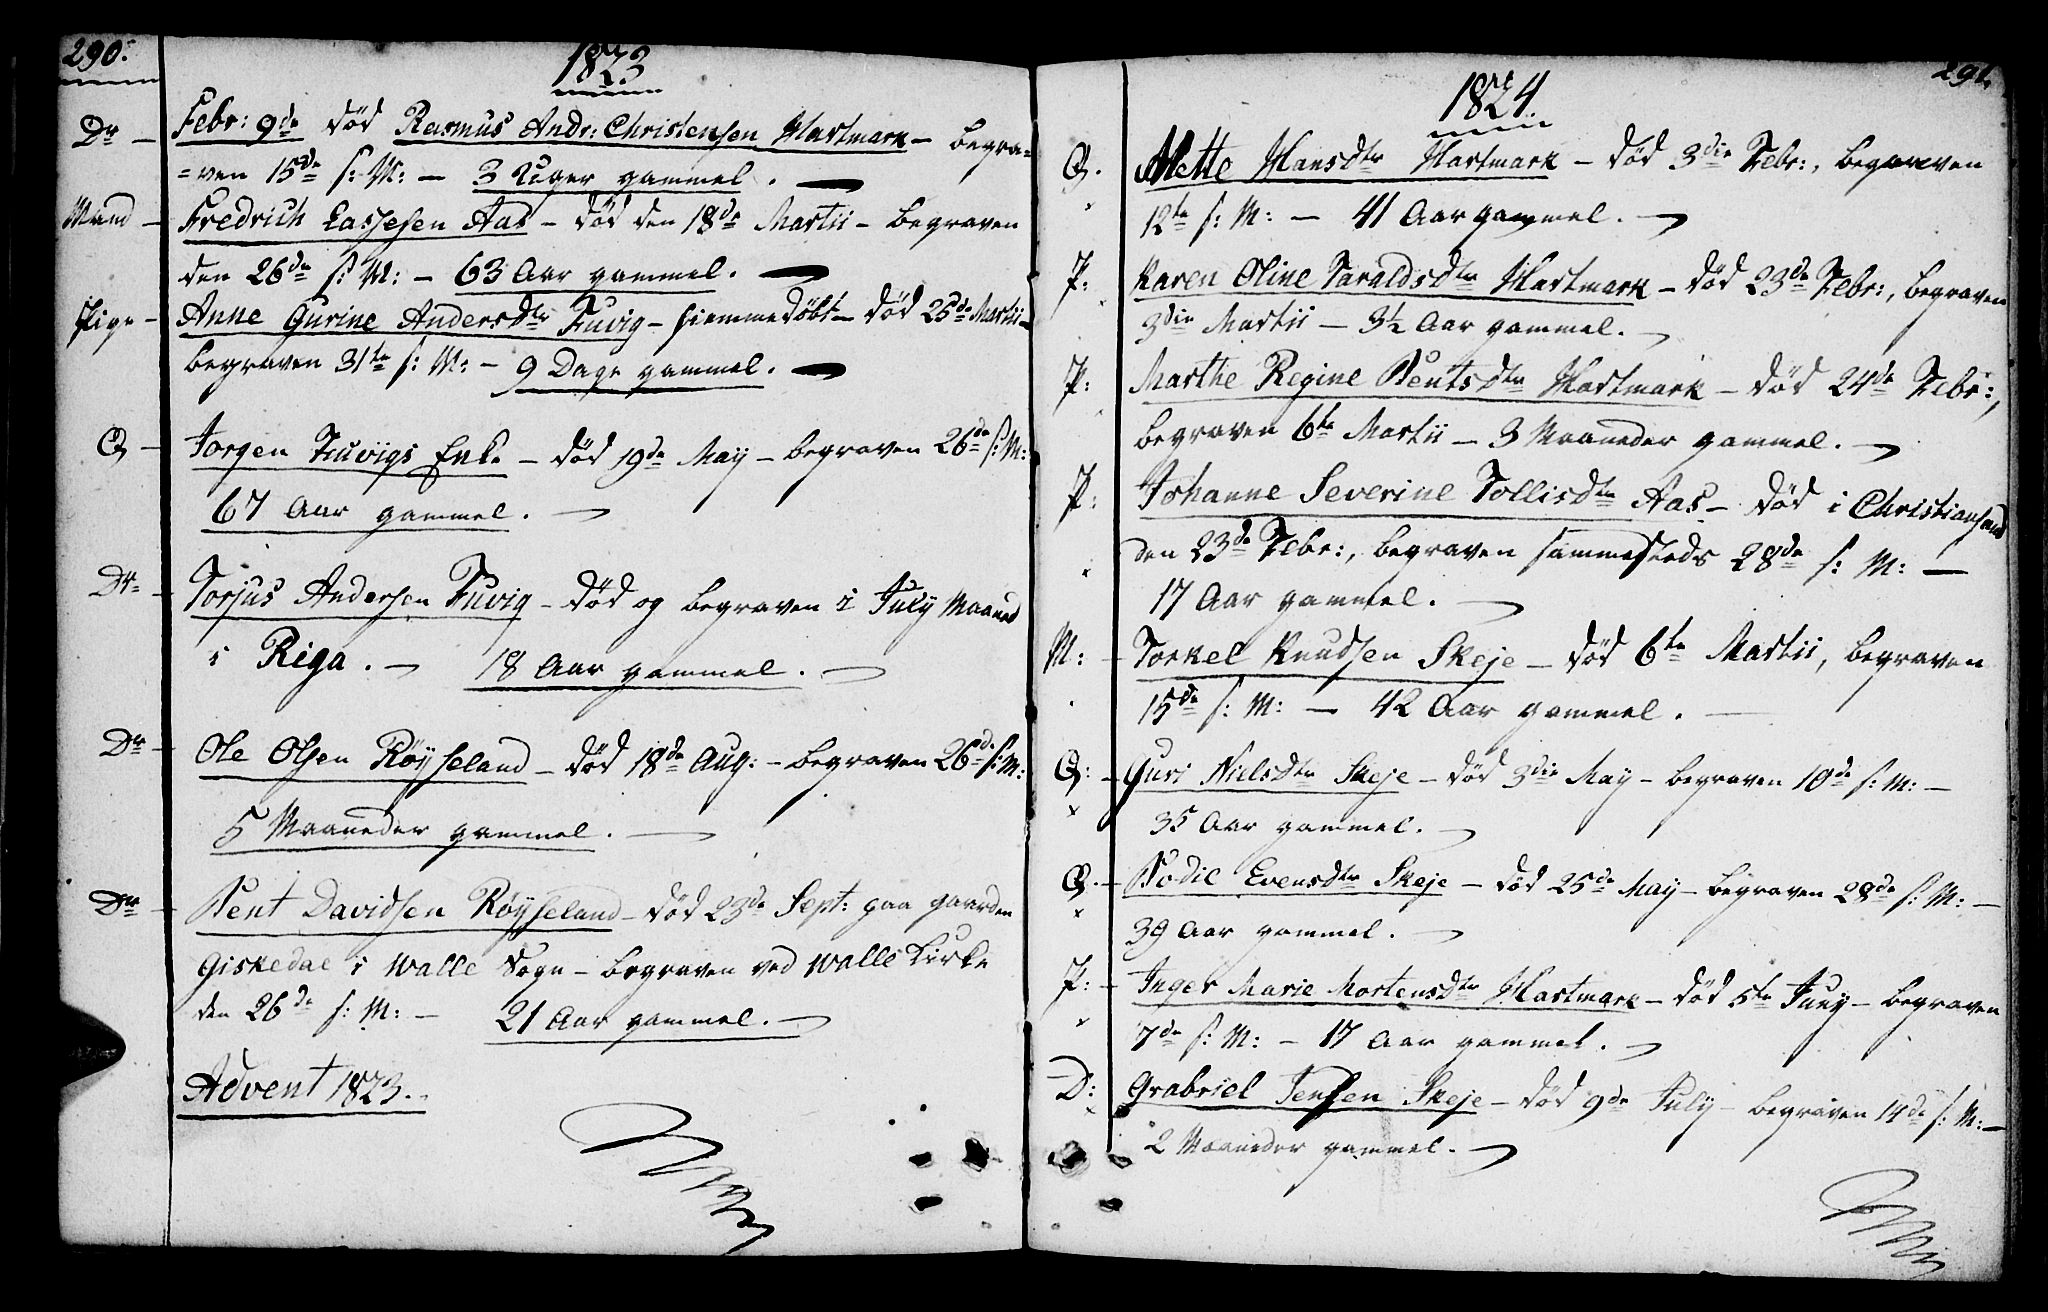 290.
1823
Dr — Febr: 9de død Rasmus Andr: Christensen Hartmark — begra=
=ven 15de s: M: — 3 Uger gammel. —
Mand — Fredrich Lassesen Aas — død den 18de Martii — begraven
den 26de s: M: — 63 Aar gammel. —
Pige — Anne Gurine Andersdtr Fuvig — hiemmedøbt — død 25de Martii —
begraven 31te s: M: — 9 Dage gammel. —
Q — Jorgen Fuvigs Enke — død 19de May — begraven 26de s: M:
67 Aar gammel. —
Dr — Torjus Andersen Fuvig — død og begraven i July Maaned
i Riga. — 18 Aar gammel. —
Dr — Ole Olsen Røysseland — død 18de Aug: — begraven 26de s: M:
5 Maaneder gammel. —
Dr — Bent Davidsen Røysseland — død 23de Sept: paa gaarden
Giskedal i Walle Sogn — begraven ved Walle Kirke
den 26de s: M: — 21 Aar gammel. —
Advent 1823.
291.
1824.
Q. Mette Hansdtr Hartmark — død 3die Febr:, begraven
12te s: M: — 41 Aar gammel. —
P: Karen Oline Taraldsdtr Hartmark — død 23de Febr:, begraven
3die Martii — 3½ Aar gammel. —
P: Marthe Regine Bentsdtr Hartmark — død 24de Febr:,
begraven 6te Martii — 3 Maaneder gammel. —
P: Johanne Severine Tollisdtr Aas — død i Christiansand
den 23de Febr:, begraven sammesteds 28de s: M: —
17 Aar gammel. —
M: — Torkel Knudsen Skeje — død 6te Martii, begraven
15de s: M: — 42 Aar gammel. —
Q: — Guri Nielsdtr Skeje — død 3die May — begraven 10de s: M: —
35 Aar gammel. —
Q. — Bodil Evensdtr Skeje — død 25de May — begraven 28de s: M: —
39 Aar gammel. —
P: — Inger Marie Mortensdtr Hartmark — død 5te Juny — begraven
7de s: M: — 17 Aar gammel. —
D: Grabriel Jensen Skeje — død 9de July — begraven 14de s: M: —
2 Maaneder gammel. —